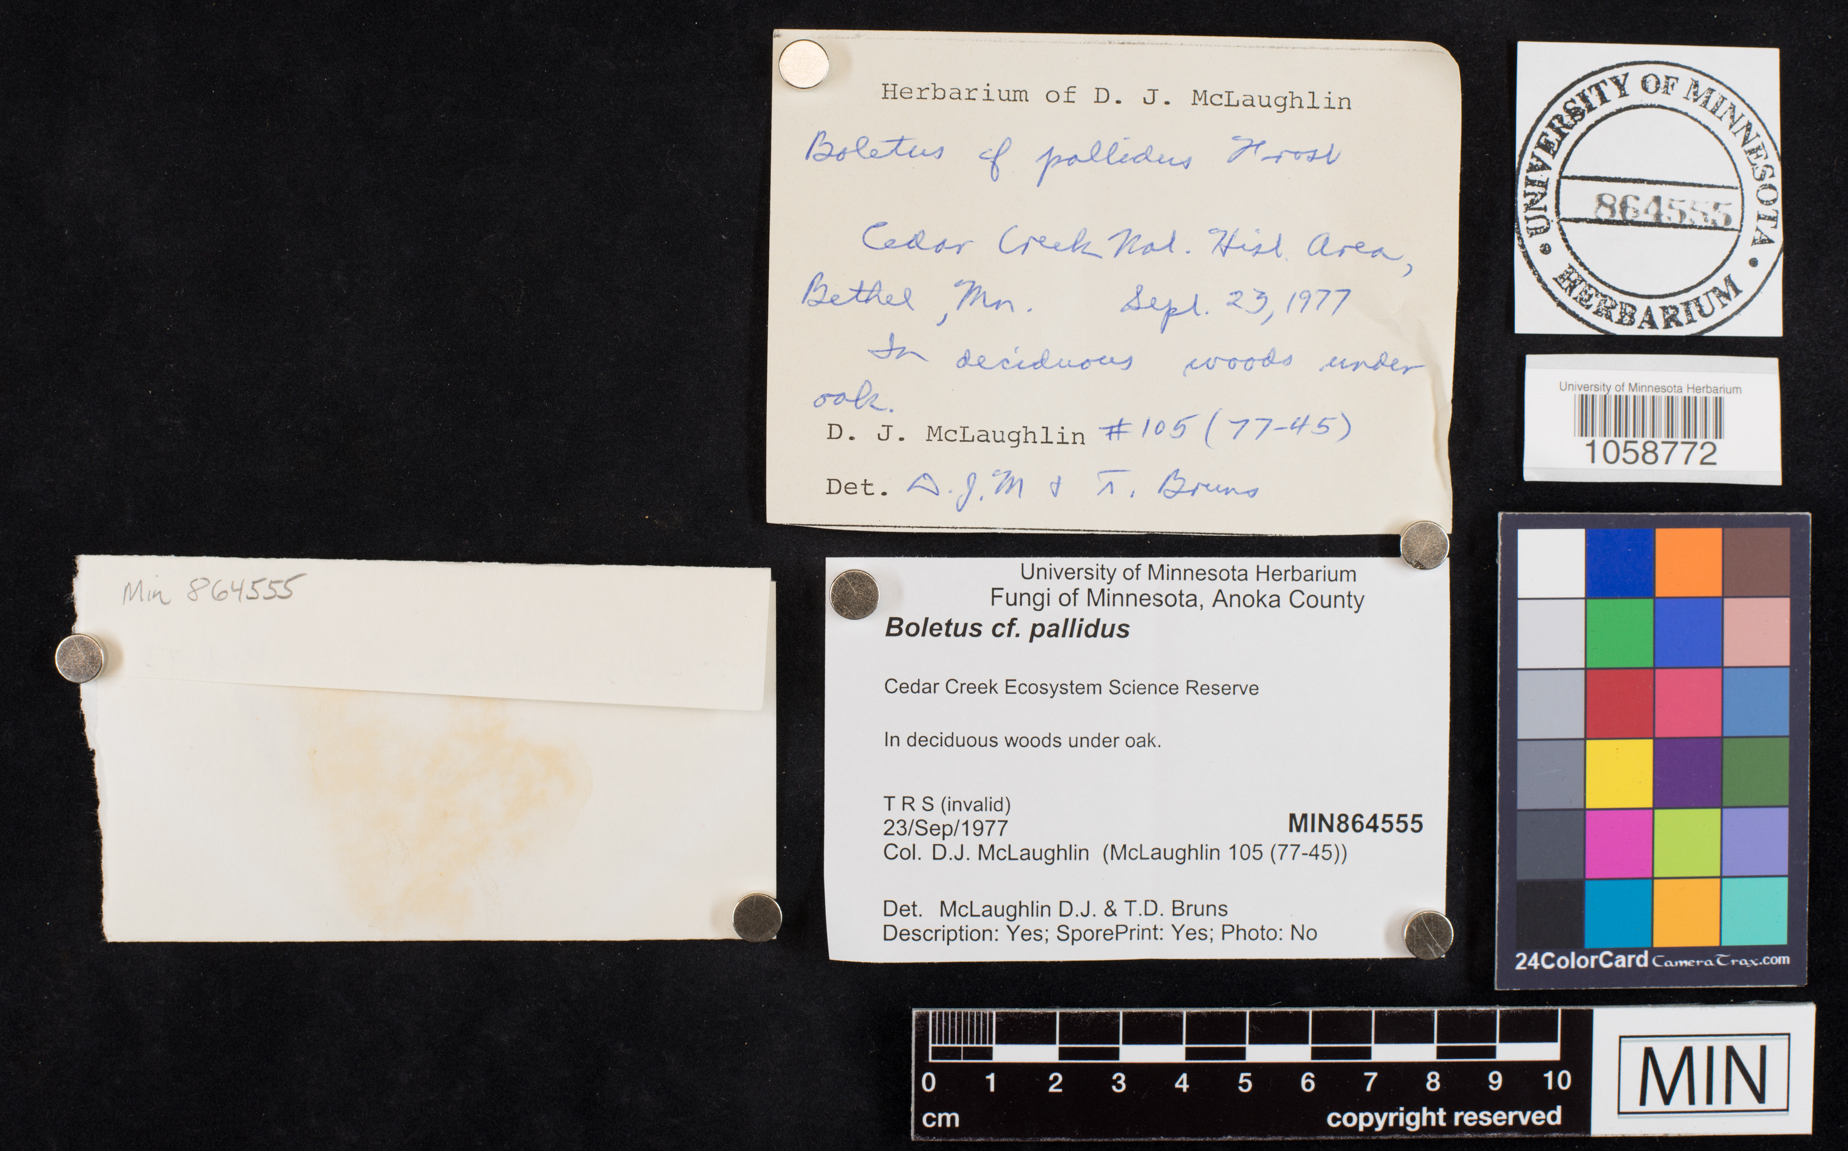 Herbarium of D. J. McLaughlin
Boletus cf pallidus Frost
Cedar Creek Nat. Hist. Area,
Bethel, Mn. Sept. 23, 1977
In deciduous woods under
oak.
D. J. McLaughlin #105 (77-45)
Det. D.J.M & T. Bruns
UNIVERSITY OF MINNESOTA
864555
HERBARIUM
University of Minnesota Herbarium
1058772
Min 864555
University of Minnesota Herbarium
Fungi of Minnesota, Anoka County
Boletus cf. pallidus
Cedar Creek Ecosystem Science Reserve
In deciduous woods under oak.
T R S (invalid)
23/Sep/1977
MIN864555
Col. D.J. McLaughlin (McLaughlin 105 (77-45))
Det. McLaughlin D.J. & T.D. Bruns
Description: Yes; SporePrint: Yes; Photo: No
24ColorCard CameraTrax.com
0 1 2 3 4 5 6 7 8 9 10
cm copyright reserved
MIN